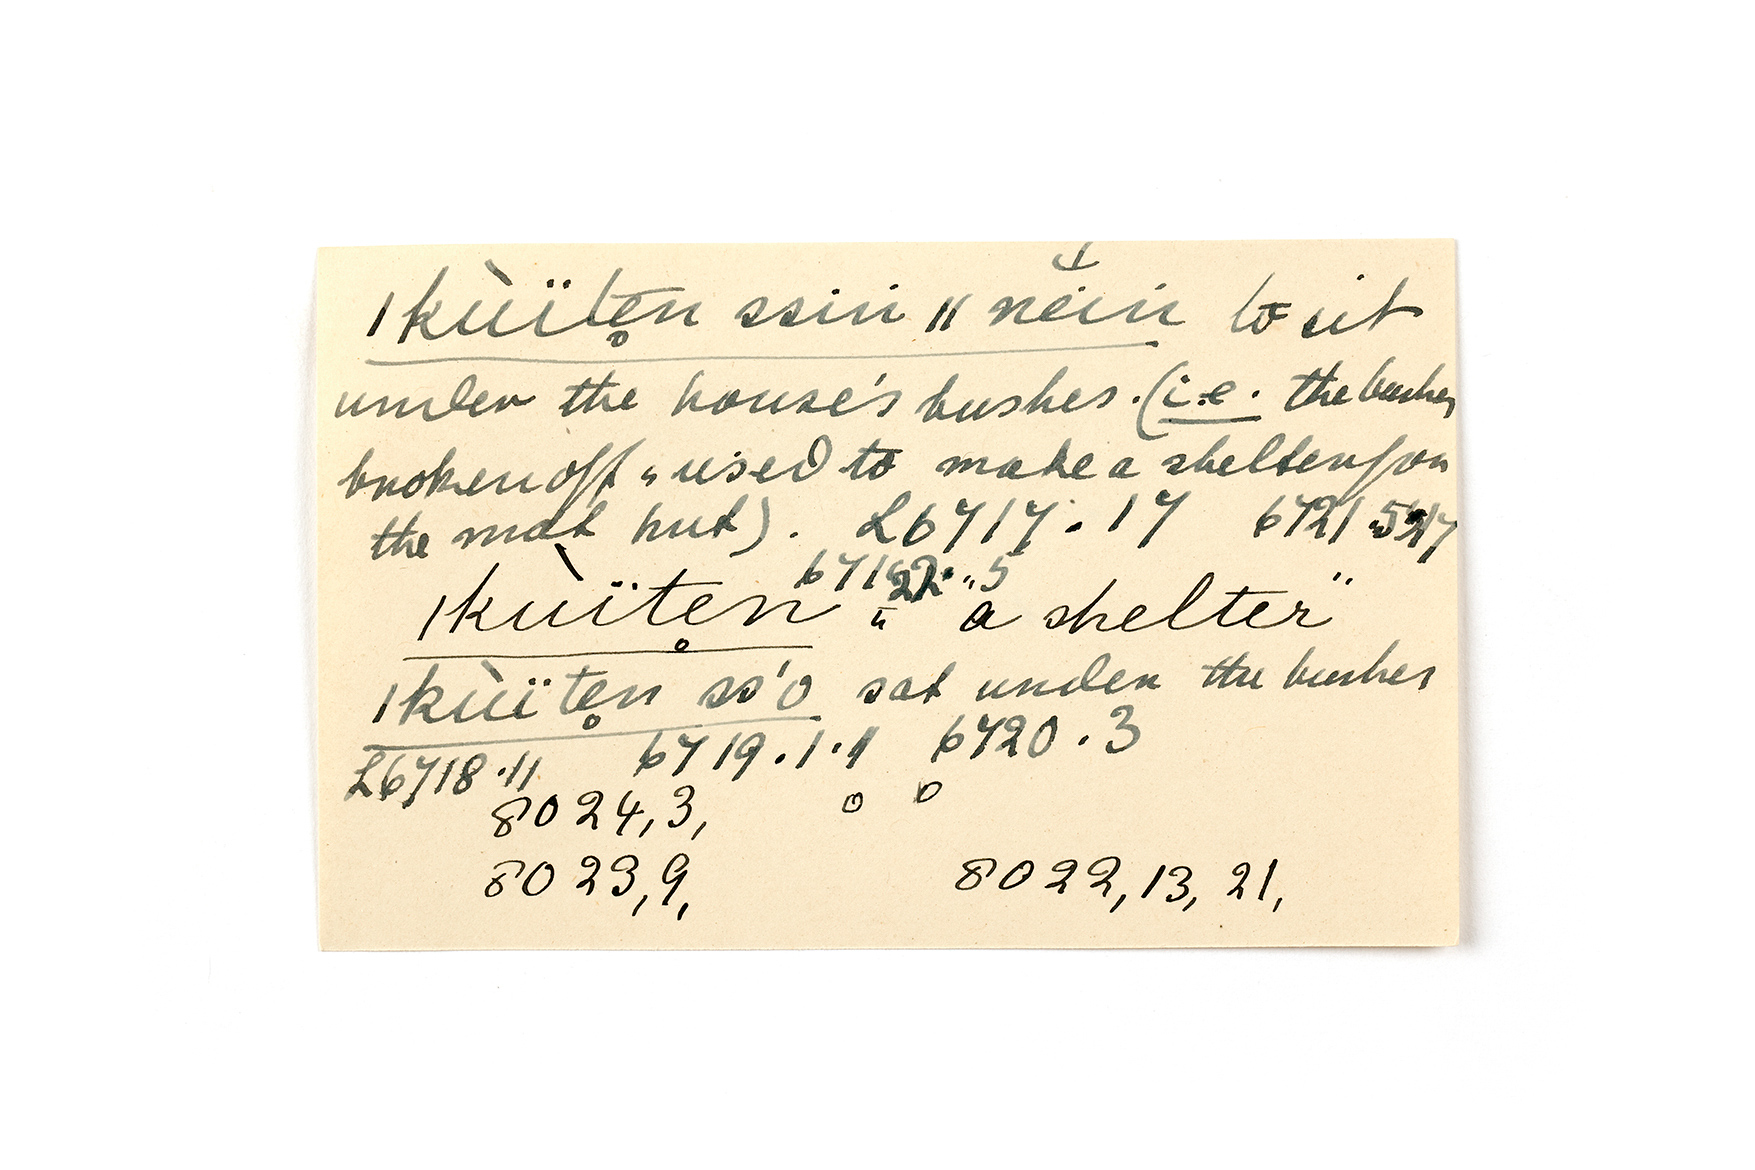 ǀkùïtẹn ssin ǁnein to sit
under the house's bushes. (i.e. the bushes
broken off & used to make a shelter for
the mat hut). L6717.17 6721.
ǀkùïtẹn " a shelter"
ǀkùïtẹn ss'o sat under the bushes
L6718.11 6719.1. 6720.3
8024,3,
8023,9, 8022,13, 21,